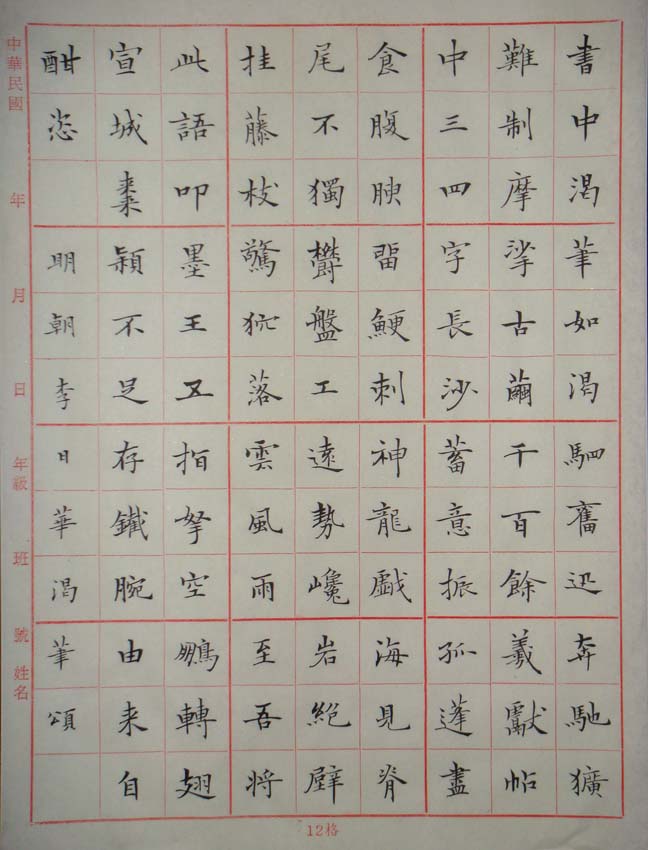 書中渴筆如渴駟奮迅奔馳獷
難制摩挲古繭千百餘羲獻帖
中三四字長沙蓄意振孤蓬盡
食腹腴留鯁刺神龍戲海見脊
尾不獨鬱盤工遠勢巉岩絕壁
挂藤枝驚狖落雲風雨至吾將
此語叩墨王五指拏空鵬轉翅
宣城棗穎不足存鐵腕由来自
酣恣
明朝李日華渴筆頌
中華民國 年 月 日 年級 班 號 姓名
12格